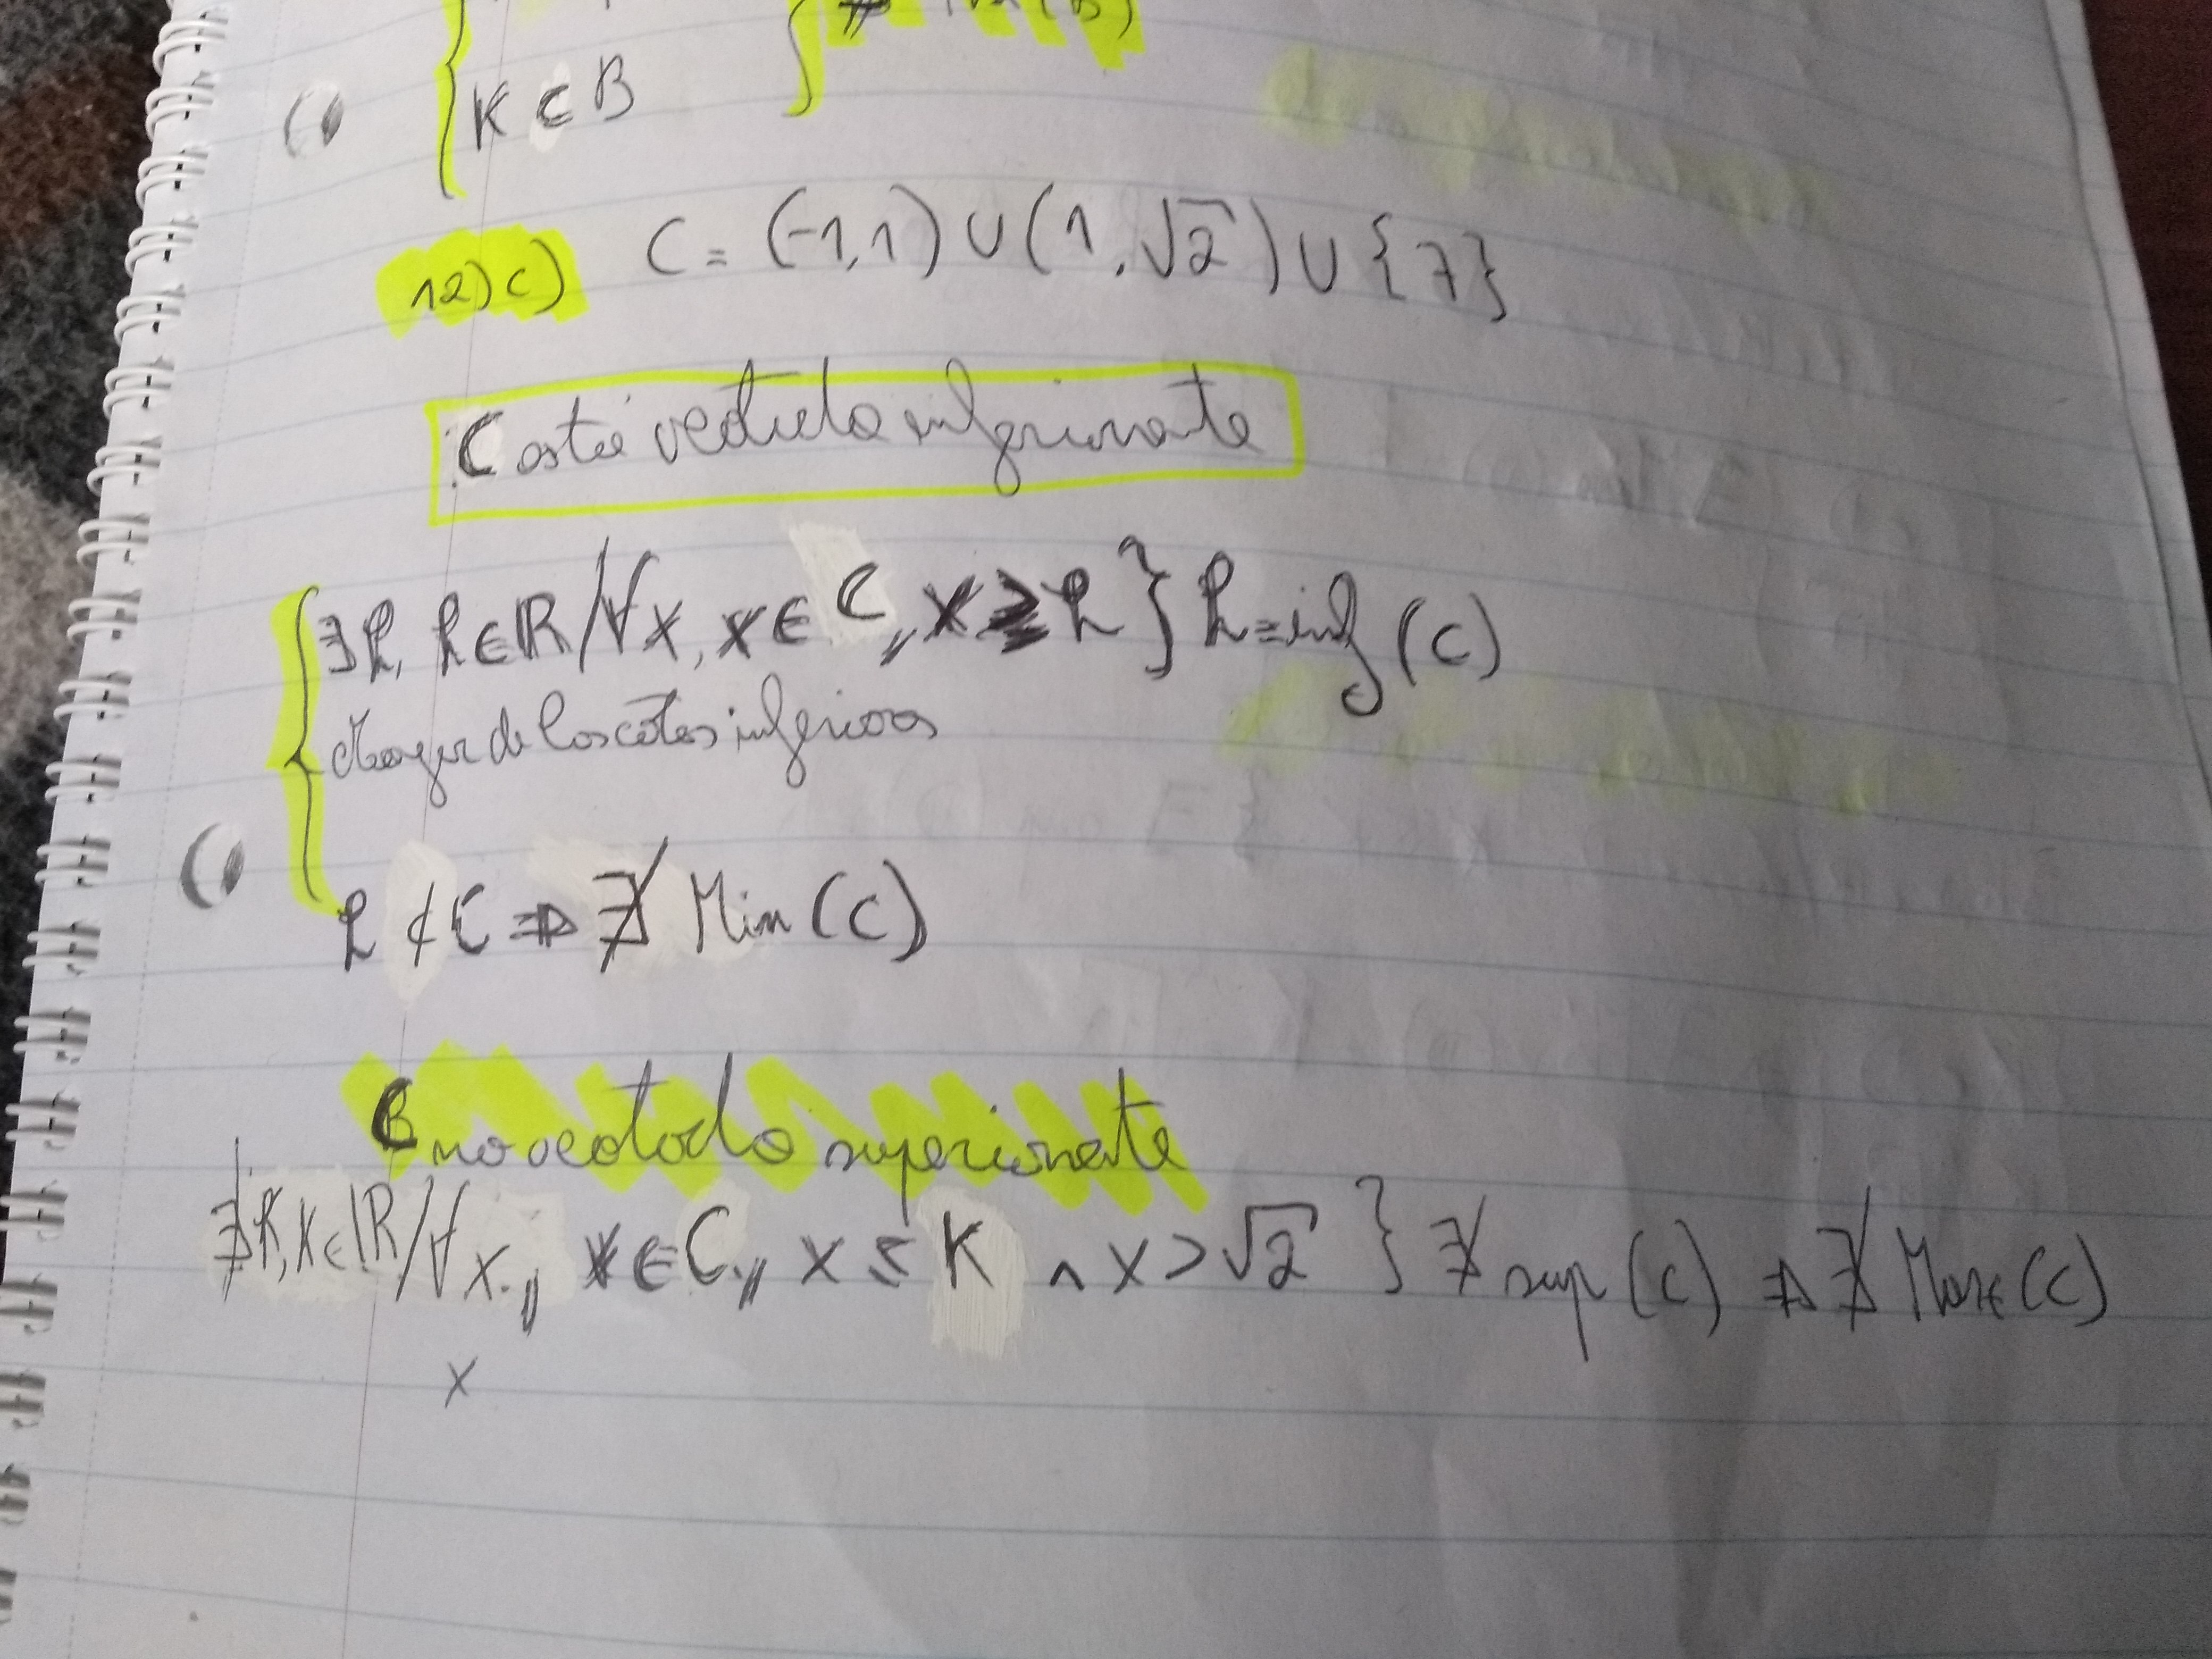 K ∈ B
12) c) C = (-1,1) ∪ (1,√2) ∪ {7}
C está acotada inferiormente
∃ h, h ∈ ℝ / ∀ x, x ∈ C,, x ≥ h } h = inf (C)
Mayor de las cotas inferiores
h ∉ C ⇒ ∄ Min (C)
C no acotado superiormente
∄ K, K ∈ ℝ / ∀ x,, x ∈ C,, x ≤ K ∧ x > √2 } ∄ sup (C) ⇒ ∄ Max (C)
x